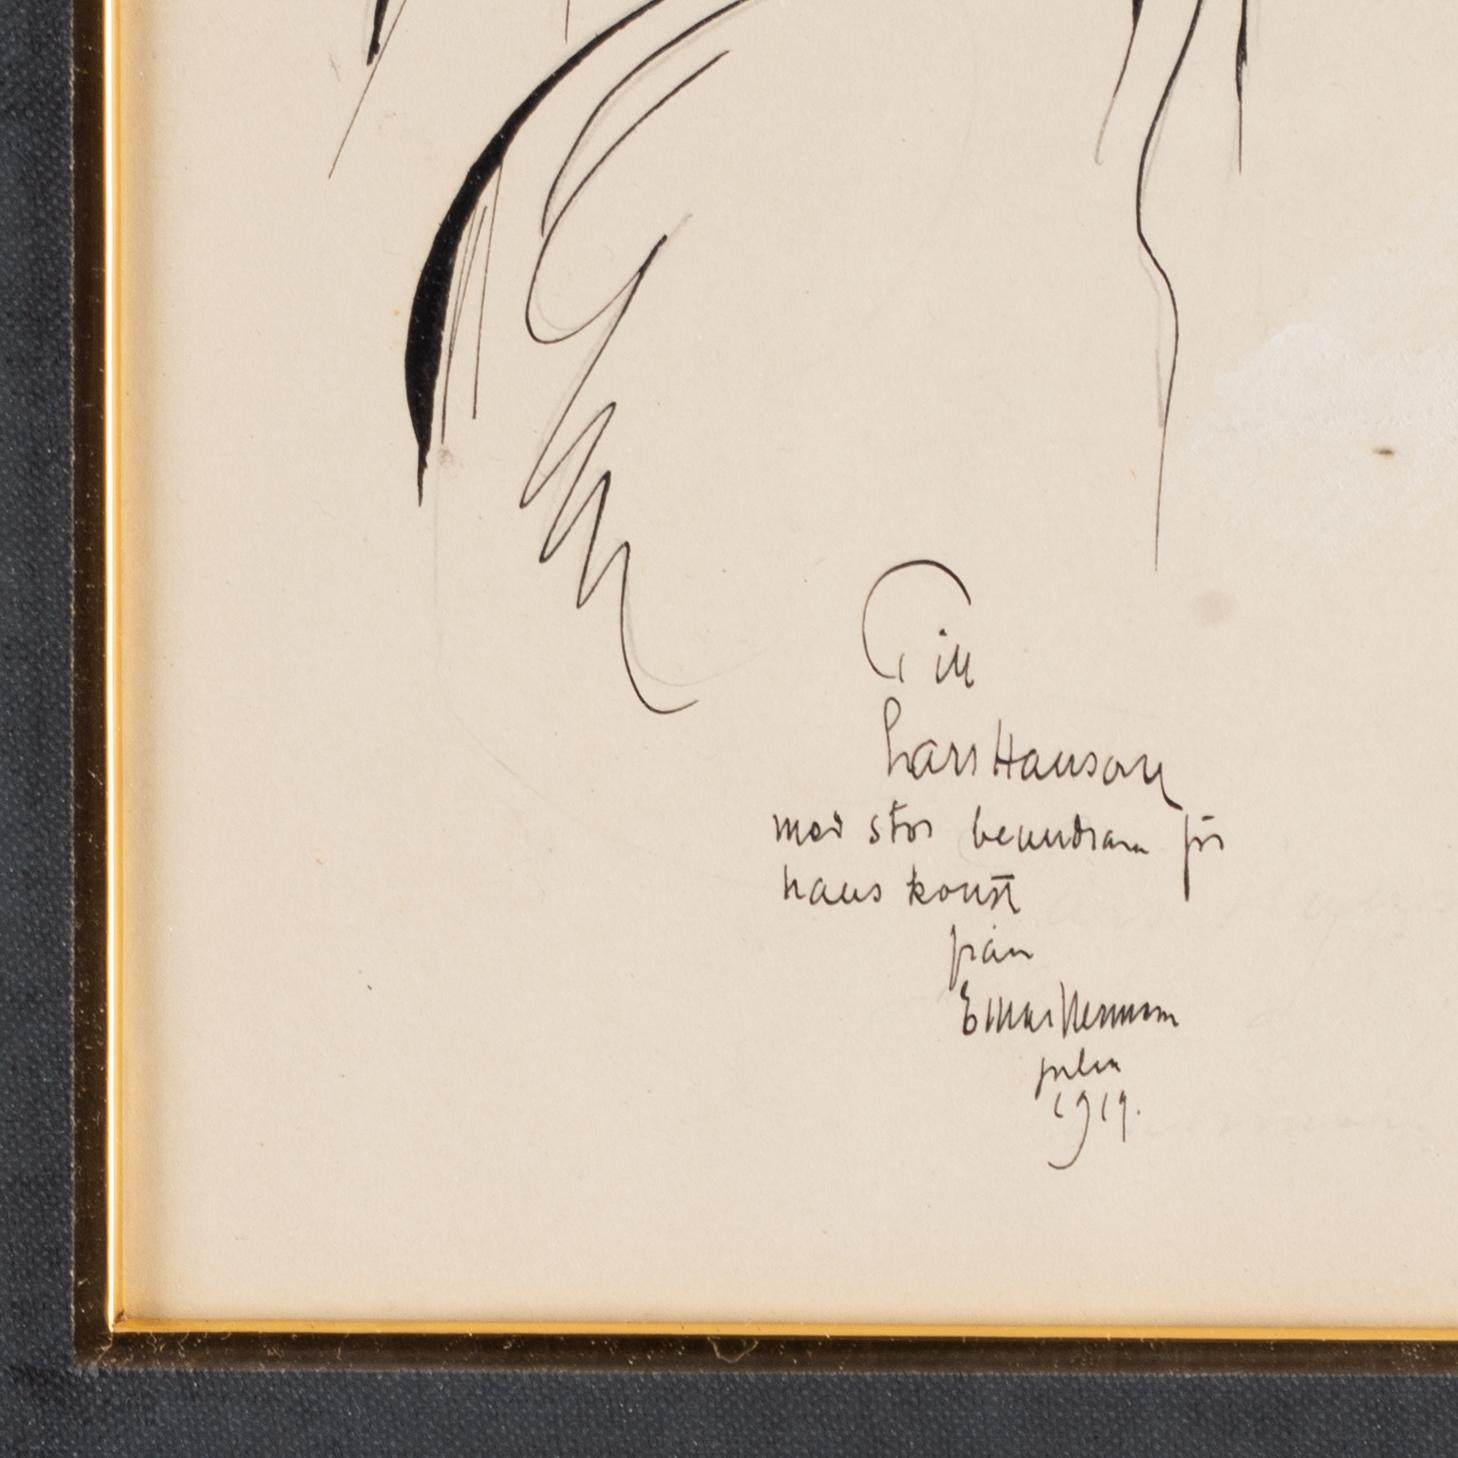 Till
Lars Hanson
med stor beundran för
hans konst
från
Einar Nerman
julen
1919.